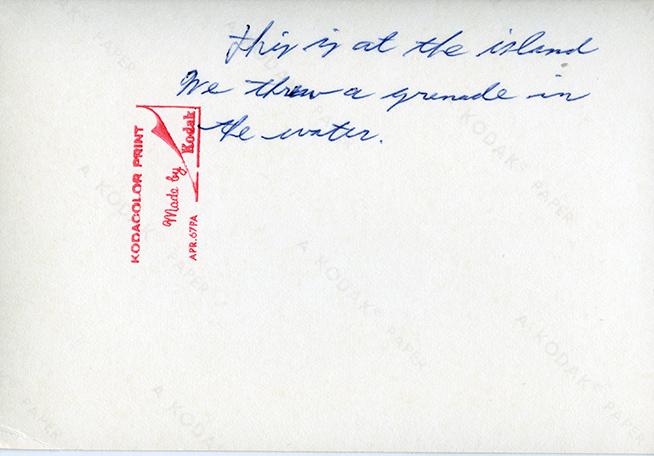 This is at the island
We threw a grenade in
the water.
KODACOLOR PRINT
Made by Kodak
APR.67PA
A KODAK PAPER
A KODAK PAPER
A KODAK PAPER
A KODAK PAPER
A KODAK PAPER